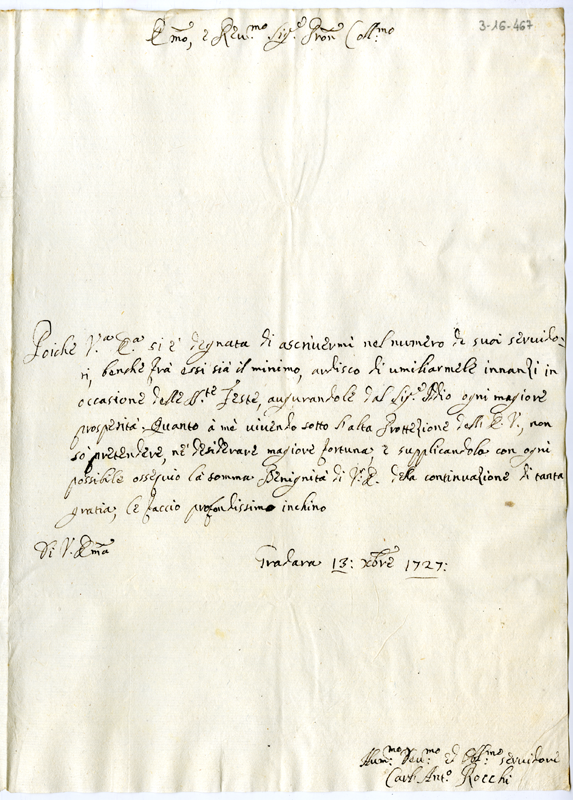 3-16-467
E.mo, e Rev.mo Sig.re Pron Coll.mo
Poiche V.ra E.a si è degnata di ascrivermi nel numero de suoi servido=
ri, benche frà essi sia il minimo, ardisco di umiliarmele innanzi in
occasione delle S.te Feste, augurandole dal Sig.re Iddio ogni magiore
prosperità. Quanto à me vivendo sotto l'alta Prottezione dell' E. V., non
sò pretendere, ne desiderare magiore fortuna, e supplicandola con ogni
possibile ossequio la somma Benignità di V. E. dela continuazione di tanta
gratia, le faccio profondissimo inchino
Di V. Em̃a
Gradara 13: xbre 1727:
Hum.mo Dev.mo ed Obb.mo servidore
Carl' Ant.o Rocchi